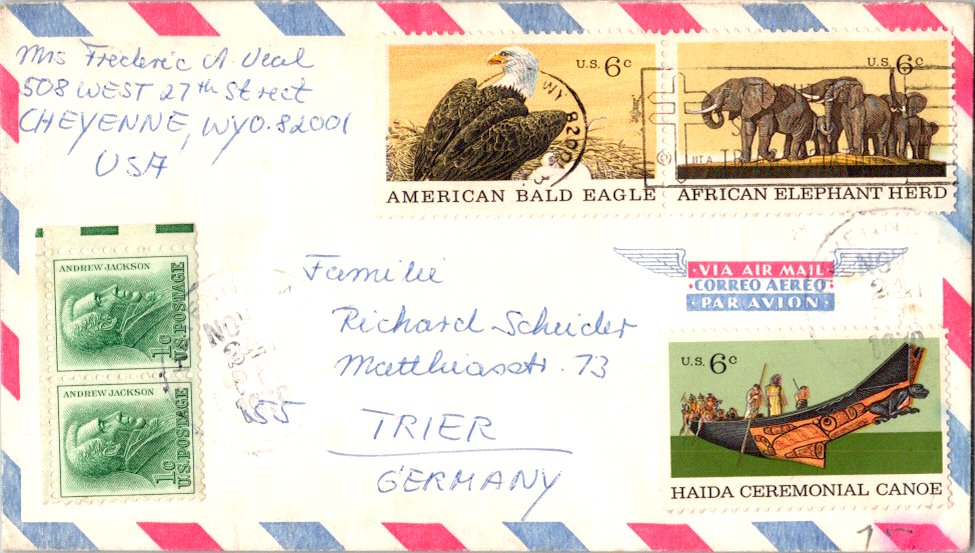 Mrs Frederic A. Veal
508 WEST 27th Street
CHEYENNE, WYO. 82001
USA
U.S. 6c
AMERICAN BALD EAGLE
U.S. 6c
AFRICAN ELEPHANT HERD
WY 82001
ANDREW JACKSON
1c
U.S. POSTAGE
ANDREW JACKSON
1c
U.S. POSTAGE
NOV
NOV
VIA AIR MAIL
CORREO AEREO
PAR AVION
Familie
Richard Scheider
Matthiasstr. 73
55
TRIER
GERMANY
U.S. 6c
HAIDA CEREMONIAL CANOE